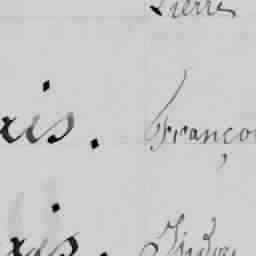 Pierre
xis. Françoi
xis. Isidore